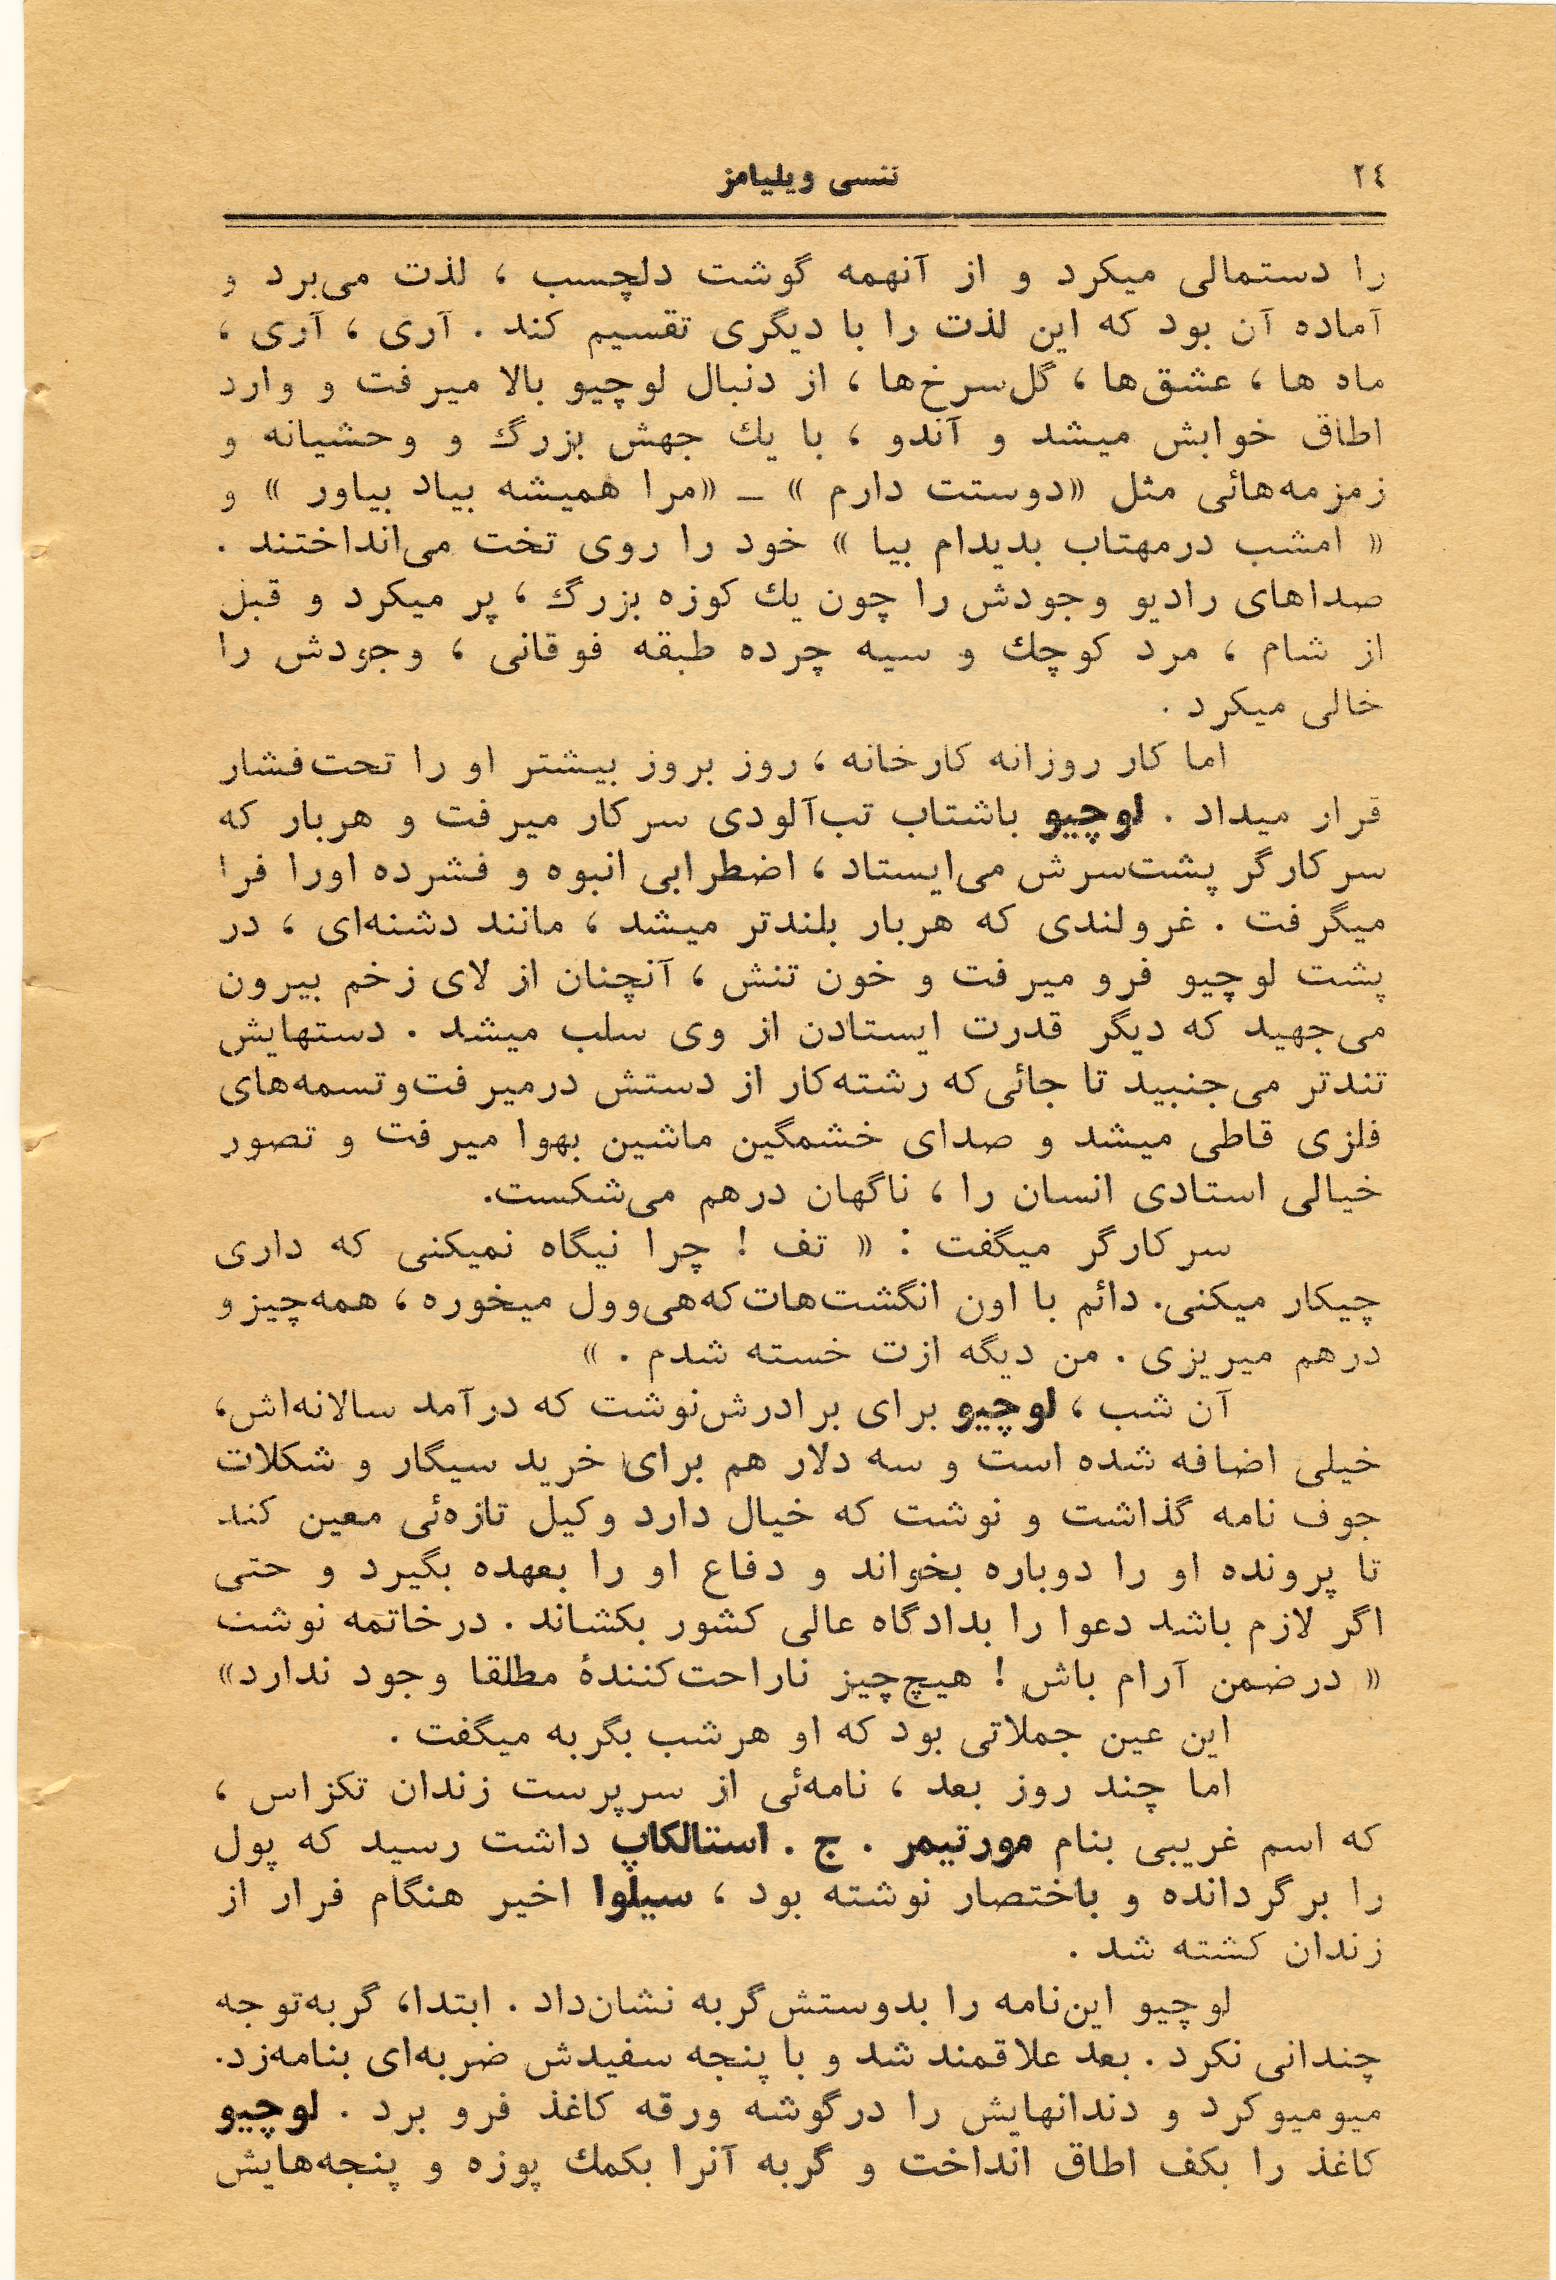 ٢٤
ننسی ویلیامز
را دستمالی میکرد و از آنهمه گوشت دلچسب ، لذت می‌برد و
آماده آن بود که این لذت را با دیگری تقسیم کند . آری ، آری ،
ماه ها ، عشق‌ها ، گل‌سرخ‌ها ، از دنبال لوچیو بالا میرفت و وارد
اطاق خوابش میشد و آندو ، با یك جهش بزرگ و وحشیانه و
زمزمه‌هائی مثل «دوستت دارم » ـ «مرا همیشه بیاد بیاور » و
« امشب درمهتاب بدیدام بیا » خود را روی تخت می‌انداختند .
صداهای رادیو وجودش را چون یك کوزه بزرگ ، پر میکرد و قبل
از شام ، مرد کوچك و سیه چرده طبقه فوقانی ، وجودش را
خالی میکرد .
اما کار روزانه کارخانه ، روز بروز بیشتر او را تحت‌فشار
قرار میداد . لوچیو باشتاب تب‌آلودی سرکار میرفت و هربار که
سرکارگر پشت‌سرش می‌ایستاد ، اضطرابی انبوه و فشرده اورا فرا
میگرفت . غرولندی که هربار بلندتر میشد ، مانند دشنه‌ای ، در
پشت لوچیو فرو میرفت و خون تنش ، آنچنان از لای زخم بیرون
می‌جهید که دیگر قدرت ایستادن از وی سلب میشد . دستهایش
تندتر می‌جنبید تا جائی‌که رشته‌کار از دستش درمیرفت‌وتسمه‌های
فلزی قاطی میشد و صدای خشمگین ماشین بهوا میرفت و تصور
خیالی استادی انسان را ، ناگهان درهم می‌شکست.
سرکارگر میگفت : « تف ! چرا نیگاه نمیکنی که داری
چیکار میکنی. دائم با اون انگشت‌هات‌که‌هی‌وول میخوره ، همه‌چیزو
درهم میریزی . من دیگه ازت خسته شدم . »
آن شب ، لوچیو برای برادرش‌نوشت که درآمد سالانه‌اش،
خیلی اضافه شده است و سه دلار هم برای خرید سیگار و شکلات
جوف نامه گذاشت و نوشت که خیال دارد وکیل تازه‌ئی معین کند
تا پرونده او را دوباره بخواند و دفاع او را بعهده بگیرد و حتی
اگر لازم باشد دعوا را بدادگاه عالی کشور بکشاند . درخاتمه نوشت
« درضمن آرام باش ! هیچ‌چیز ناراحت‌کنندهٔ مطلقا وجود ندارد»
این عین جملاتی بود که او هرشب بگربه میگفت .
اما چند روز بعد ، نامه‌ئی از سرپرست زندان تکزاس ،
که اسم غریبی بنام مورتیمر . ج . استالکاپ داشت رسید که پول
را برگردانده و باختصار نوشته بود ، سیلوا اخیر هنگام فرار از
زندان کشته شد .
لوچیو این‌نامه را بدوستش‌گربه نشان‌داد . ابتدا، گربه‌توجه
چندانی نکرد . بعد علاقمند شد و با پنجه سفیدش ضربه‌ای بنامه‌زد.
میومیوکرد و دندانهایش را درگوشه ورقه کاغذ فرو برد . لوچیو
کاغذ را بکف اطاق انداخت و گربه آنرا بکمك پوزه و پنجه‌هایش